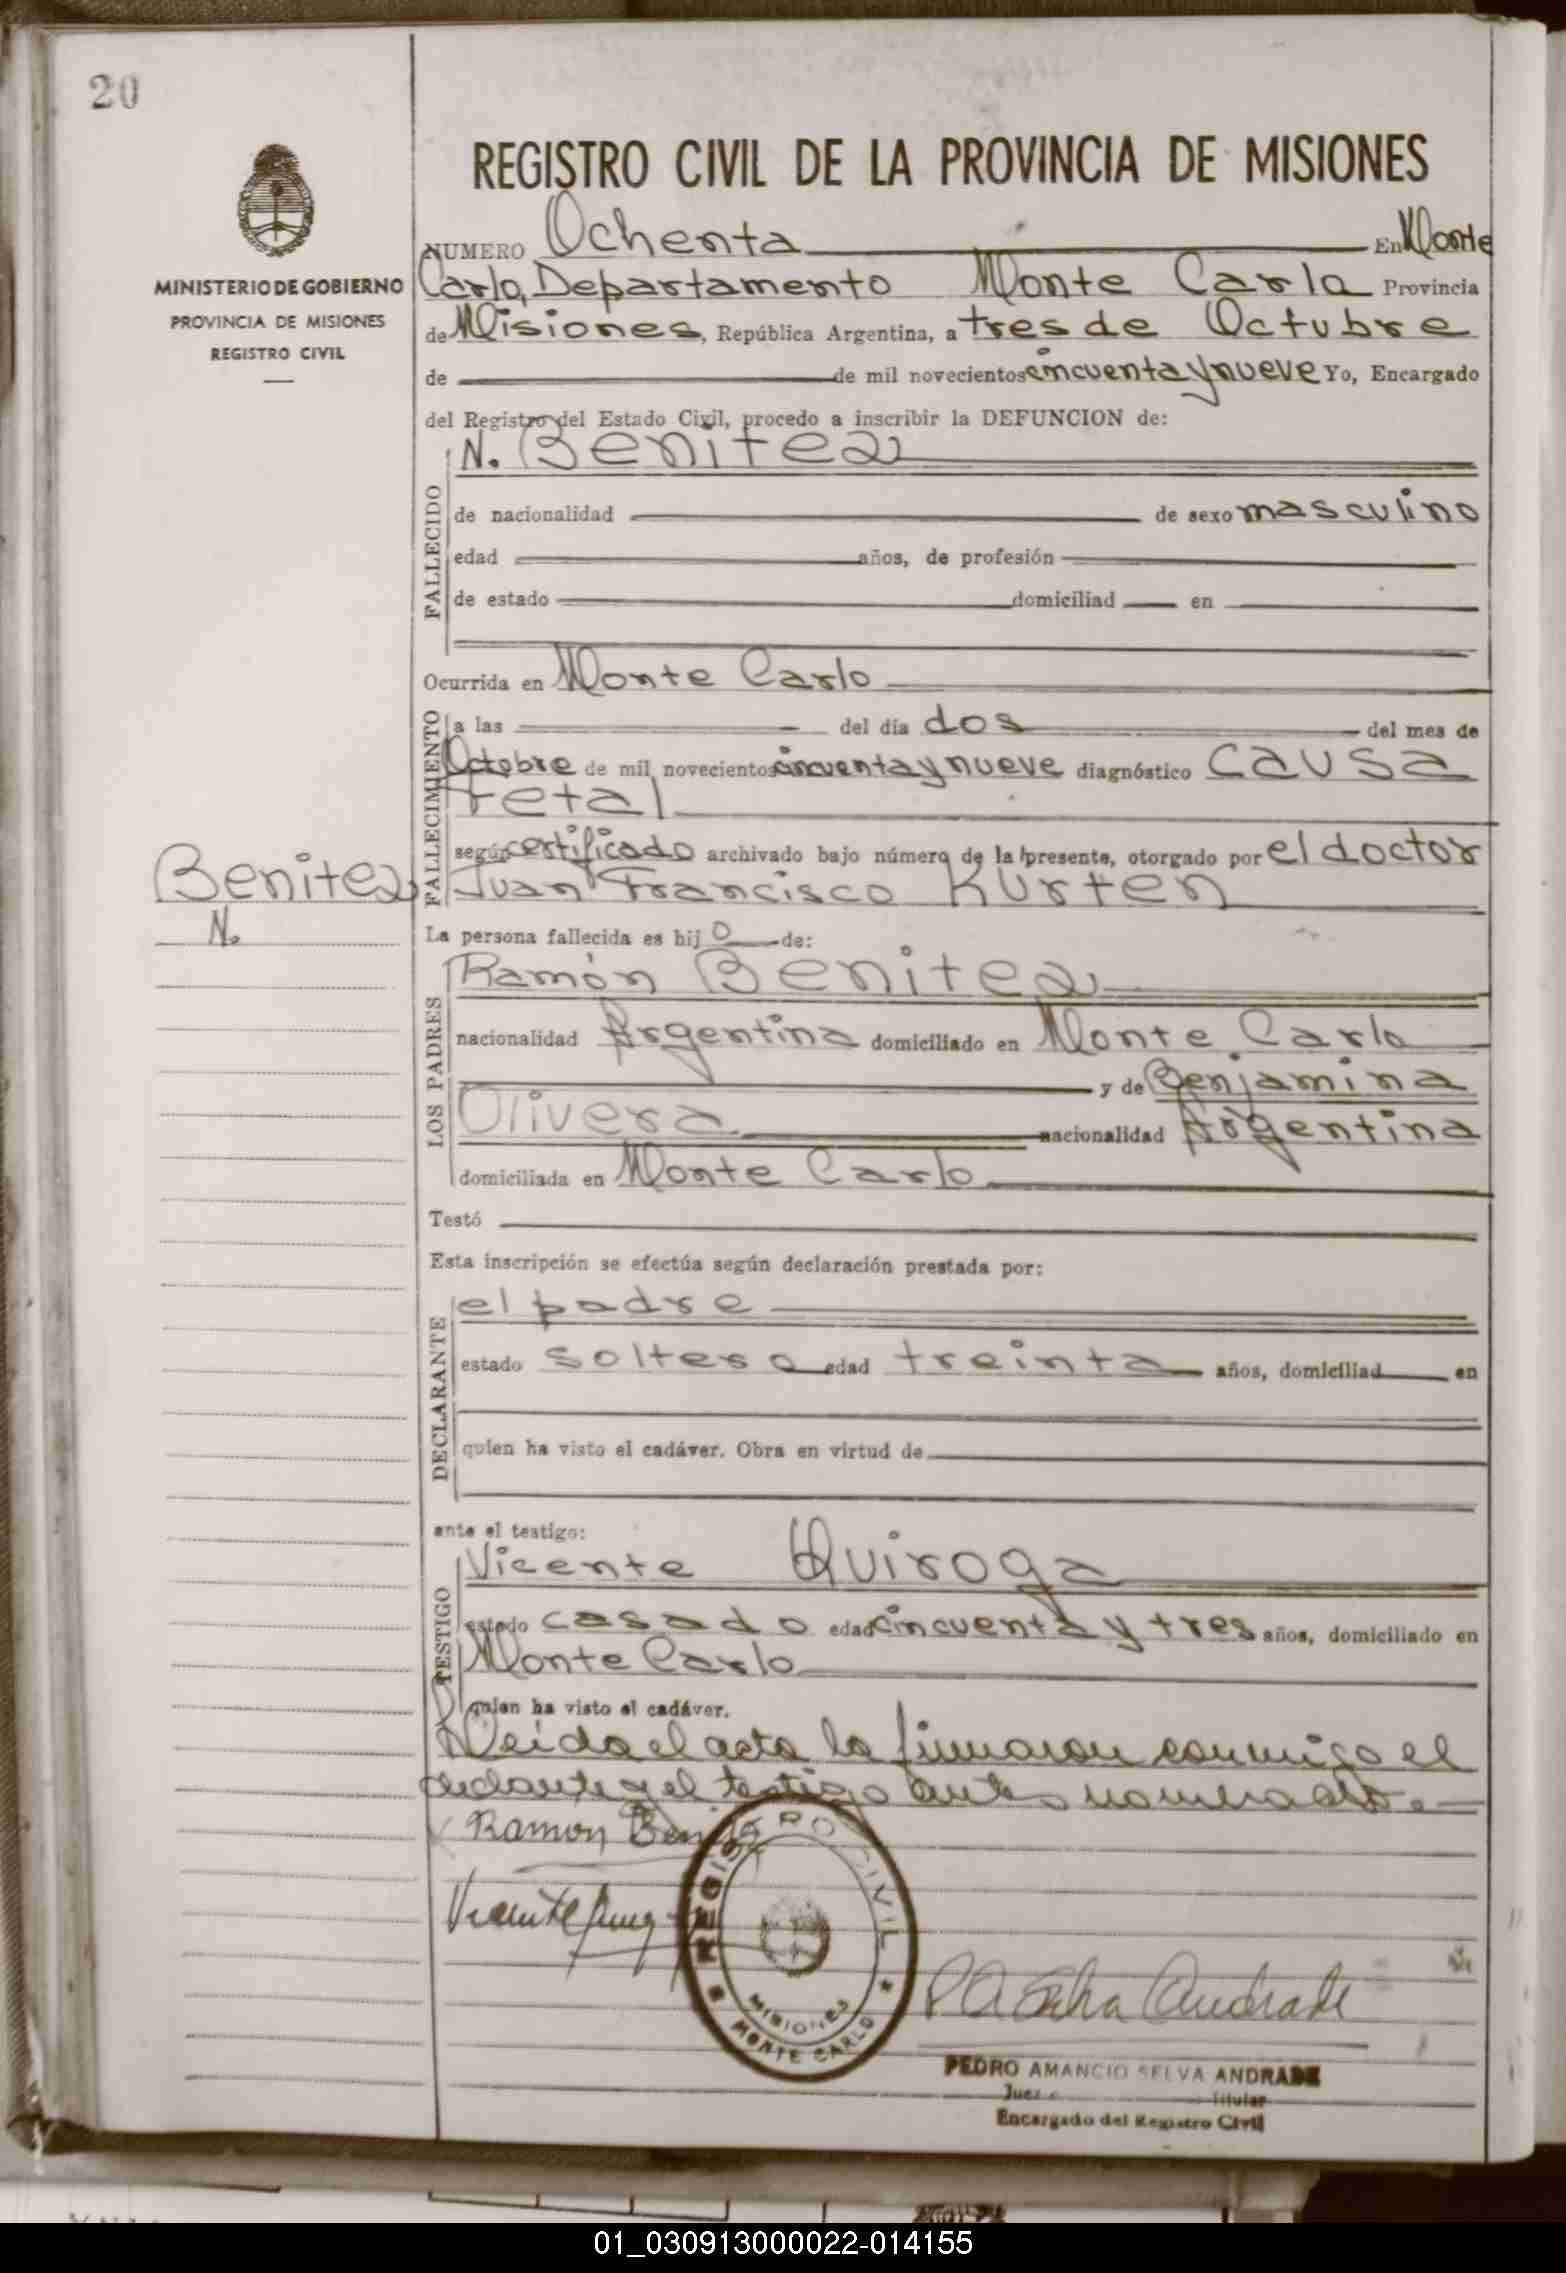 20
REGISTRO CIVIL DE LA PROVINCIA DE MISIONES
MINISTERIO DE GOBIERNO
PROVINCIA DE MISIONES
REGISTRO CIVIL
NUMERO Ochenta En Monte
Carlo, Departamento Monte Carlo Provincia
de Misiones, República Argentina, a tres de Octubre
de de mil novecientos cincuenta y nueve Yo, Encargado
del Registro del Estado Civil, procedo a inscribir la DEFUNCION de:
FALLECIDO
N. Benitez
de nacionalidad de sexo masculino
edad años, de profesión
de estado domiciliad en
Ocurrida en Monte Carlo
FALLECIMIENTO
a las del día dos del mes de
Octobre de mil novecientos cincuenta y nueve diagnóstico causa
Fetal
según certificado archivado bajo número de la presente, otorgado por el doctor
Juan Francisco Kurten
Benitez
N.
La persona fallecida es hij o de:
LOS PADRES
Ramón Benitez
nacionalidad Argentina domiciliado en Monte Carlo
y de Benjamina
Olivera nacionalidad Argentina
domiciliada en Monte Carlo
Testó
Esta inscripción se efectúa según declaración prestada por:
DECLARANTE
el padre
estado soltero edad treinta años, domiciliad en
quien ha visto el cadáver. Obra en virtud de
ante el testigo:
TESTIGO
Vicente Quiroga
estado casado edad cincuenta y tres años, domiciliado en
Monte Carlo
quien ha visto el cadáver.
Leída el acta la firmaron conmigo el
y el testigo antes nombrado.
Ramon Benitez
Vicente
REGISTRO CIVIL
MISIONES
MONTE CARLO
P A Selva Andrade
PEDRO AMANCIO SELVA ANDRADE
Juez Titular
Encargado del Registro Civil
01_030913000022-014155